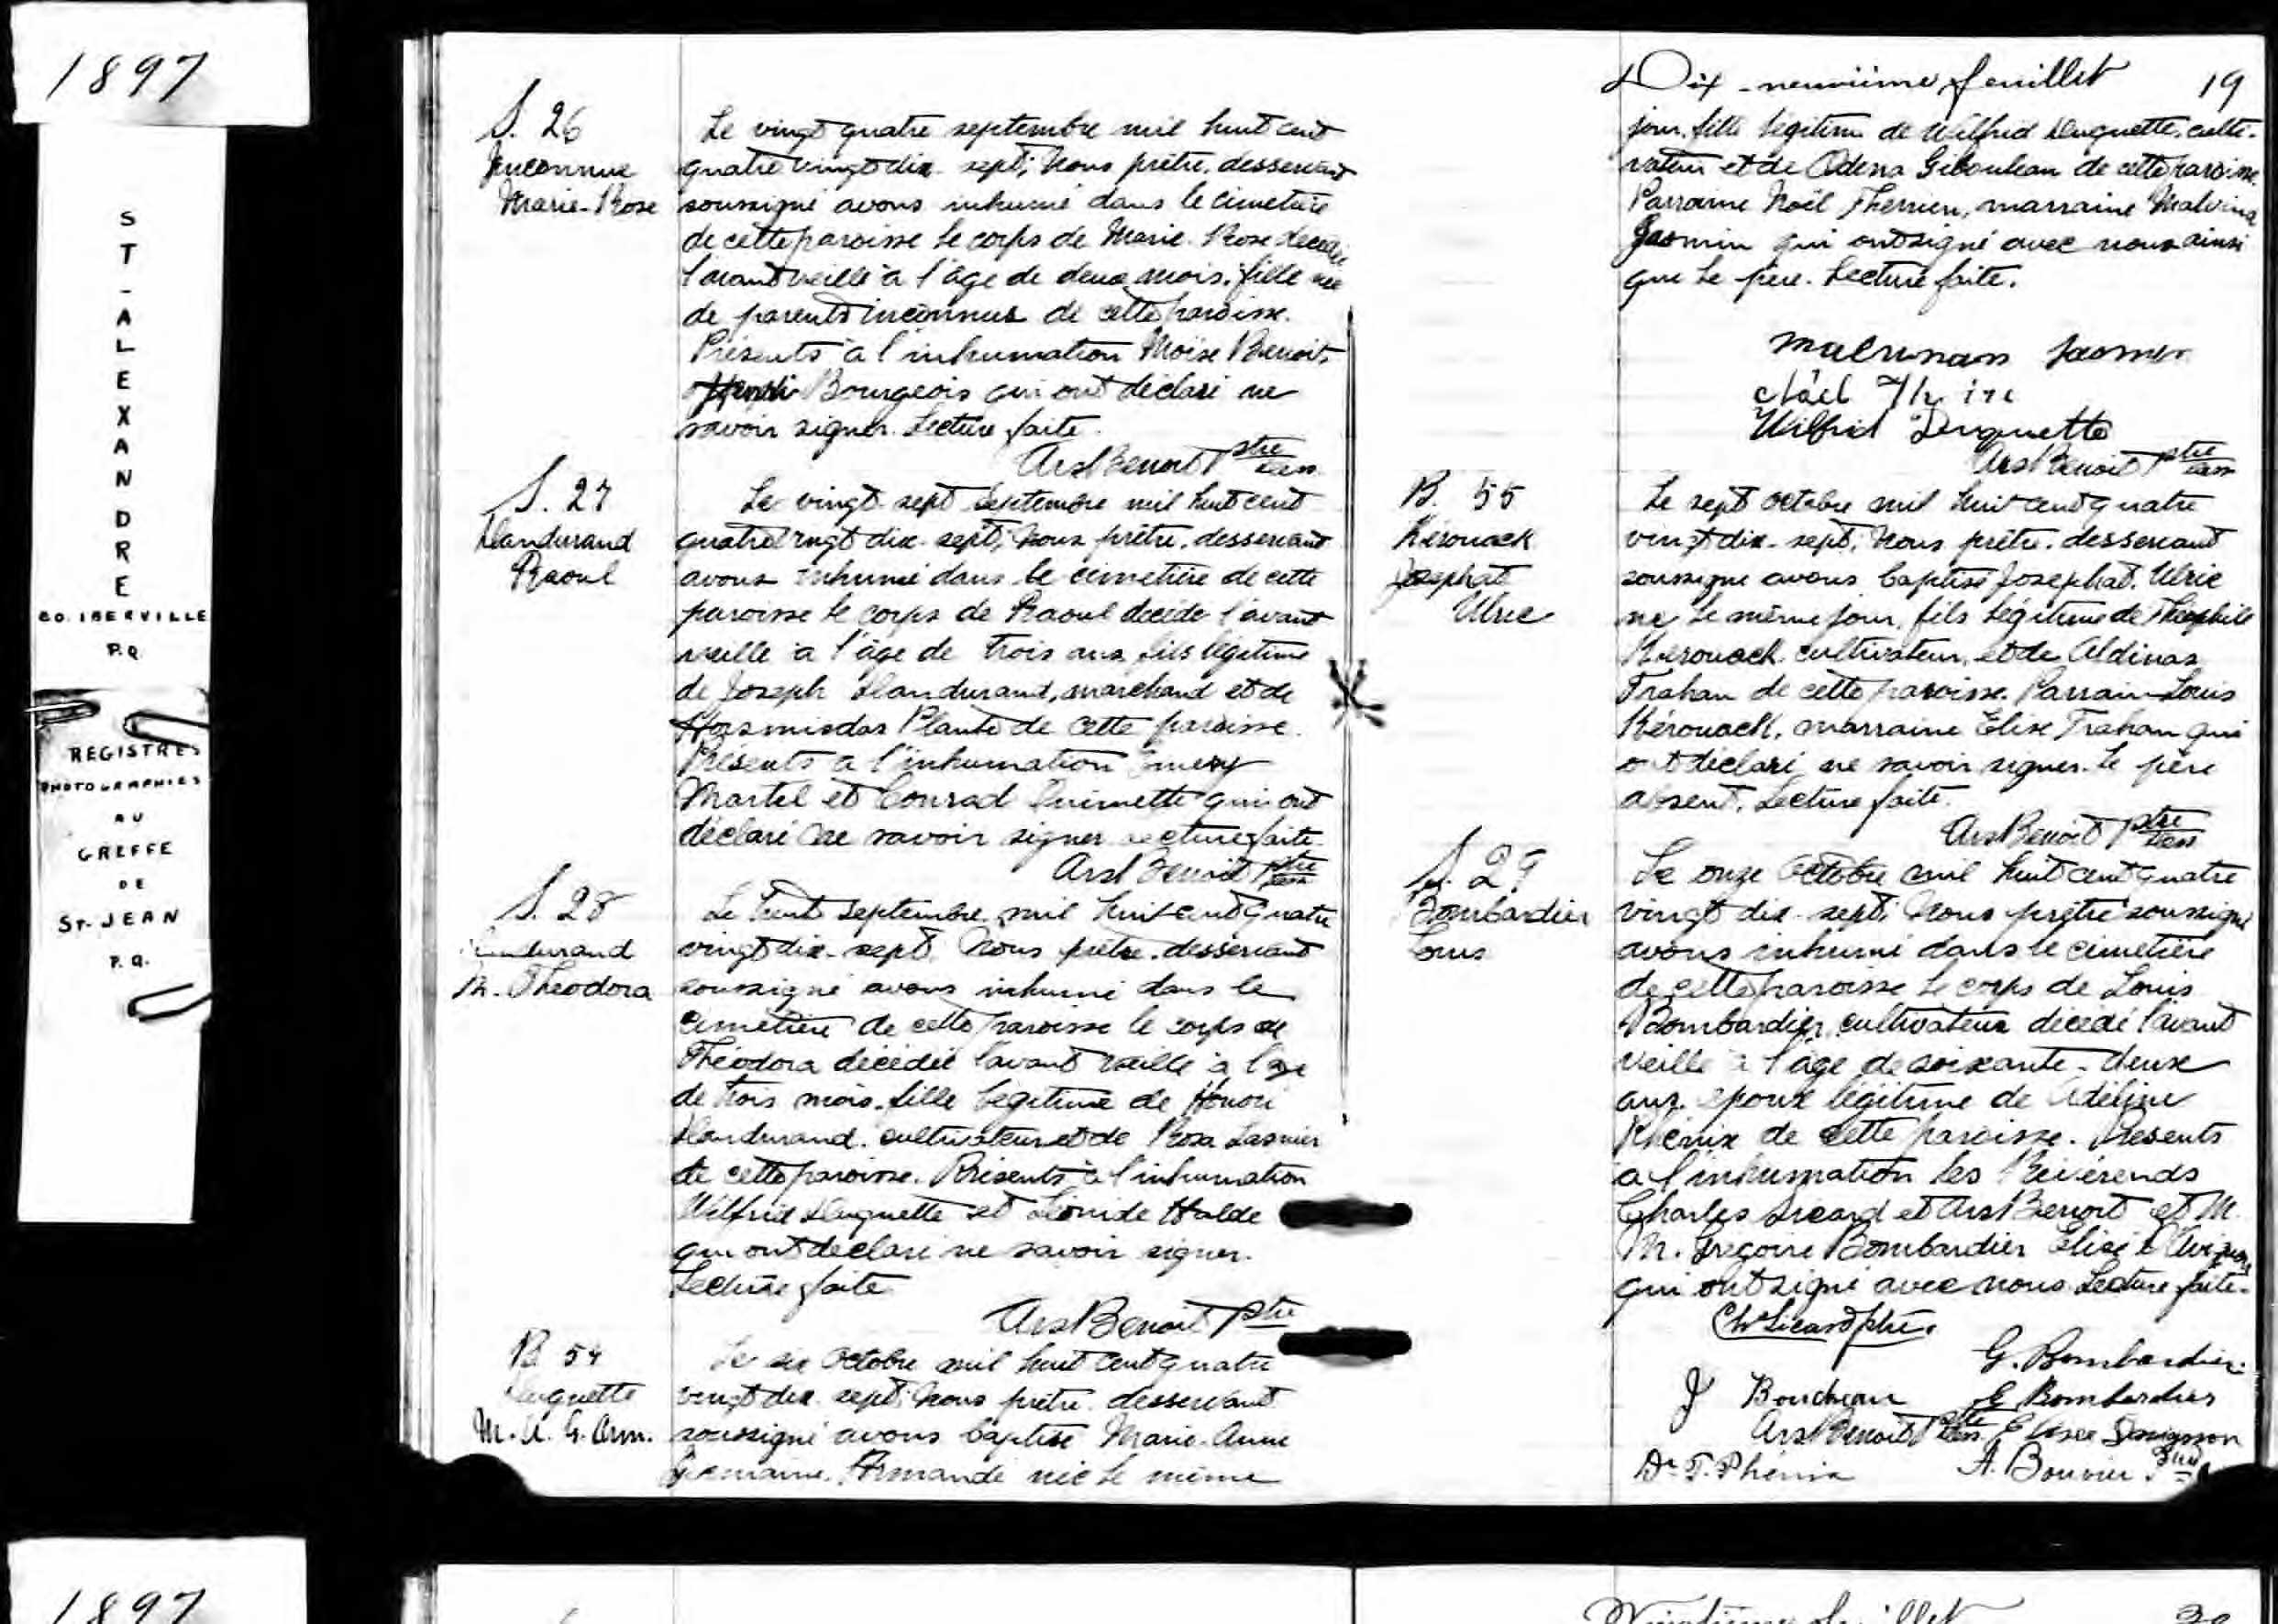 1897
ST-ALEXANDRE
CO. IBERVILLE
P.Q.
REGISTRES
PHOTOGRAPHIES
AU
GREFFE
DE
ST-JEAN
P.Q.
S. 26
Inconnue
Marie-Rose
Le vingt quatre septembre mil huit cent
quatre vingt dix-sept, Nous prêtre desservant
soussigné avons inhumé dans le cimetière
de cette paroisse le corps de Marie-Rose décédée
l'avant veille à l'âge de deux mois, fille née
de parents inconnus de cette paroisse.
Présents à l'inhumation Moïse Benoit,
Bourgeois qui ont déclaré ne
savoir signer. Lecture faite.
Ars Benoit Ptre
S. 27
Dandurand
Raoul
Le vingt-sept septembre mil huit cent
quatre vingt dix-sept, Nous prêtre desservant
avons inhumé dans le cimetière de cette
paroisse le corps de Raoul décédé l'avant
veille à l'âge de trois ans, fils légitime
de Joseph Dandurand, marchand et de
Hormisdas Plante de cette paroisse.
Présents à l'inhumation Emery
Martel et Conrad Ouimette qui ont
déclaré ne savoir signer Lecture faite.
Ars Benoit Ptre
S. 28
Dandurand
M. Théodora
Le trente septembre mil huit cent quatre
vingt dix-sept, Nous prêtre desservant
soussigné avons inhumé dans le
cimetière de cette paroisse le corps de
Théodora décédée l'avant veille à l'âge
de trois mois, fille légitime de Honoré
Dandurand cultivateur et de Rosa Lasnier
de cette paroisse. Présents à l'inhumation
Wilfrid Duquette et Léonide Halde
qui ont déclaré ne savoir signer.
Lecture faite
Ars Benoit Ptre
B 54
Duquette
M. A. G. Arm.
Le six Octobre mil huit cent quatre
vingt dix-sept, Nous prêtre desservant
soussigné avons baptisé Marie-Anne
Germaine Armande née le même
Dix-neuvième feuillet 19
jour, fille légitime de Wilfrid Duquette, culti-
vateur et de Odena Gibouleau de cette paroisse.
Parraine Noël Therrien, marraine Malvina
Jasmin qui ont signé avec nous ainsi
que le père. Lecture faite.
Wilfrid Duquette
Ars Benoit Ptre
B. 55
Kérouack
Josephat
Ulric
Le sept Octobre mil huit cent quatre
vingt dix-sept, Nous prêtre desservant
soussigné avons baptisé Josephat Ulric
né le même jour, fils légitime de Théophile
Kérouack cultivateur, et de Aldinas
Trahan de cette paroisse. Parrain Louis
Kérouack, marraine Elise Trahan qui
ont déclaré ne savoir signer. Le père
absent. Lecture faite.
Ars Benoit Ptre
S. 29
Bombardier
Louis
Le onze Octobre mil huit cent quatre
vingt dix-sept, Nous prêtre soussigné
avons inhumé dans le cimetière
de cette paroisse le corps de Louis
Bombardier, cultivateur décédé l'avant
veille à l'âge de soixante-deux
ans, époux légitime de Adéline
Phénix de cette paroisse. Présents
à l'inhumation les Révérends
Charles Sicard et Ars Benoit et M.
M. Grégoire Bombardier Elisé
qui ont signé avec nous. Lecture faite.
Ch Sicard ptre.
G. Bombardier
J Boucheau E Bombardier
Ars Benoit Ptre
Dr T. Phénix A. Bouvier
1897